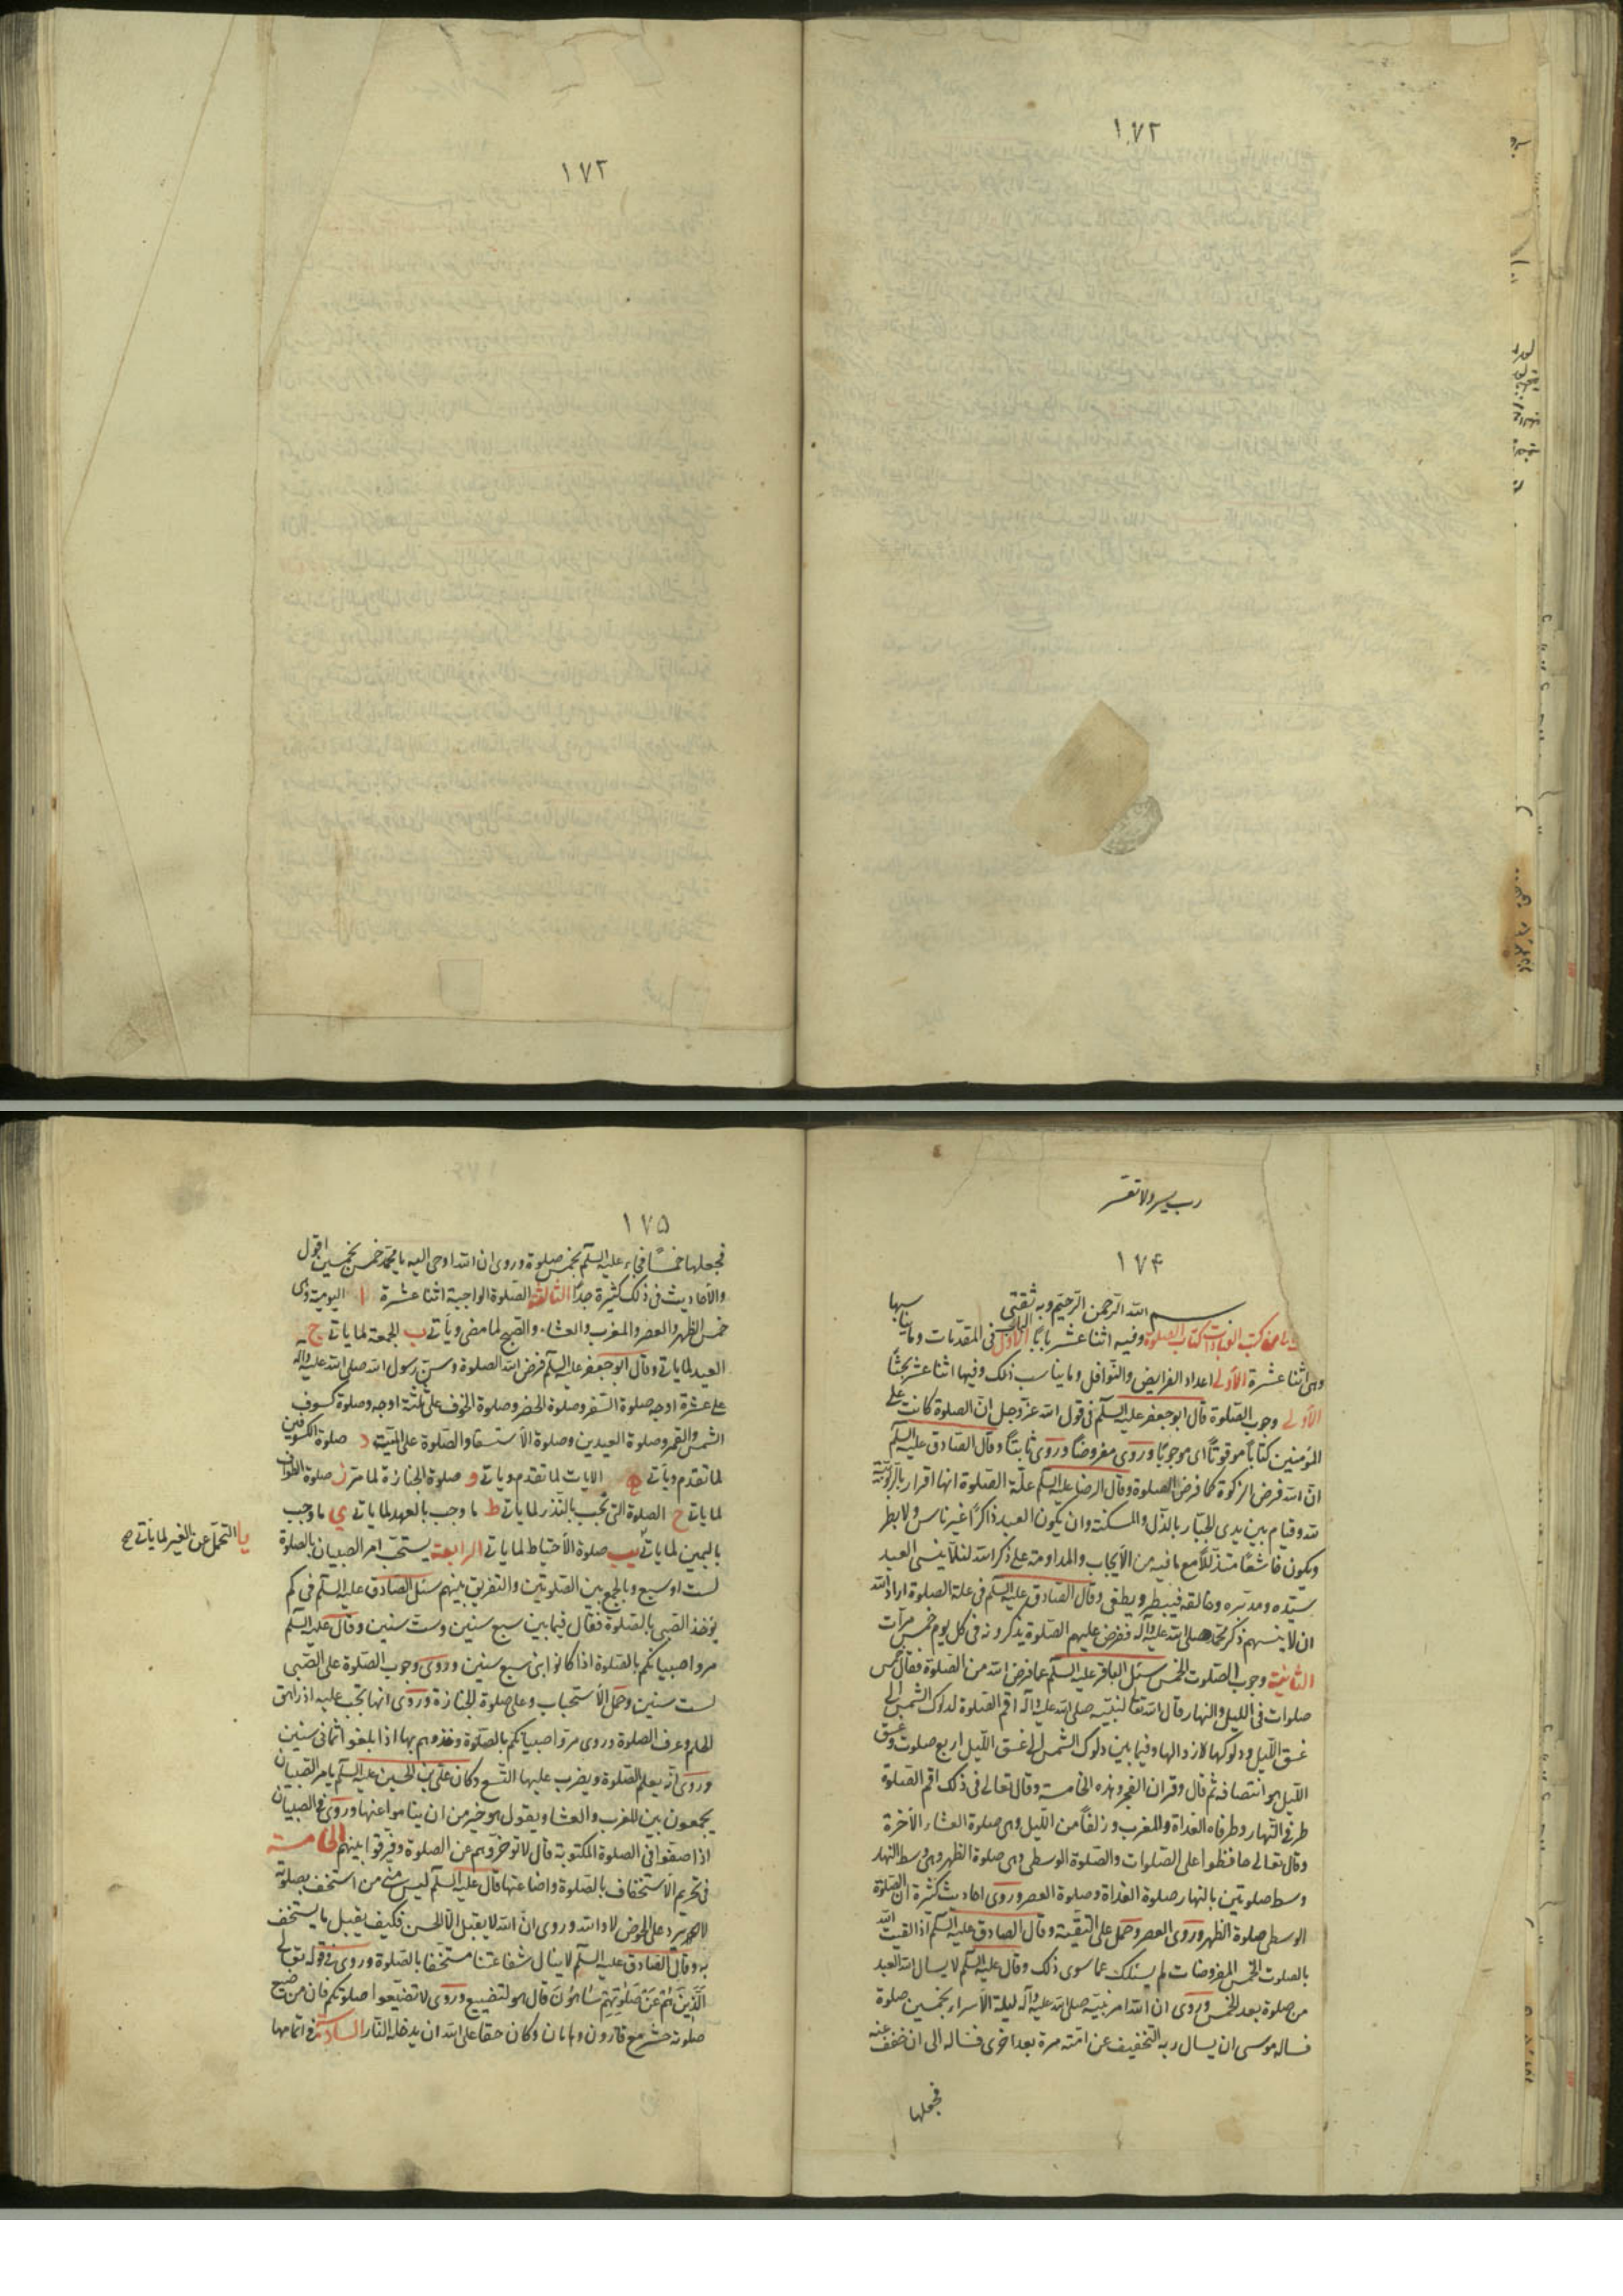 ١٧٢
١٧٣
رب يسر ولا تعسر
١٧٤
بسم الله الرحمن الرحيم وبه ثقتي
من كتب العبادات كتاب الصلوة وفيه اثنا عشر بابًا الباب الأول في المقدمات وما يناسبها
وهي اثنا عشرة الأولى اعداد الفرايض والنوافل وما يناسب ذلك وفيها اثنا عشر بحثًا
الأول وجوب الصلوة قال ابو جعفر عليه السلم في قول الله عز وجل ان الصلوة كانت على
المؤمنين كتابًا موقوتًا اى موجوبًا وروى مفروضًا وروى ثابتًا وقال الصادق عليه السلم
ان الله فرض الزكوة كما فرض الصلوة وقال الرضا عليه السلم علة الصلوة انها اقرار بالربوبية
لله وقيام بين يدى الجبار بالذل والمسكنة وان يكون العبد ذاكرًا غير ناس ولا بطر
ويكون خاشعًا متذللًا مع ما فيه من الأيجاب والمداومة على ذكر الله لئلا ينسى العبد
سيده ومدبره وخالقه فيبطر ويطغى وقال الصادق عليه السلم في علة الصلوة اراد الله
ان لا ينسيهم ذكر محمد صلى الله عليه وآله ففرض عليهم الصلوة يذكرونه في كل يوم خمس مرات
الثانية وجوب الصلوت الخمس سئل الباقر عليه السلم عما فرض الله من الصلوة فقال خمس
صلوات في الليل والنهار قال الله تعالى لنبيه صلى الله عليه وآله اقم الصلوة لدلوك الشمس الى
غسق الليل ودلوكها زوالها وفيما بين دلوك الشمس الى غسق الليل اربع صلوت وغسق
الليل هو انتصافه ثم قال وقران الفجر وهذه الخامسة وقال تعالى في ذلك اقم الصلوة
طرفي النهار وطرفاه الغداة والمغرب وزلفًا من الليل وهي صلوة العشاء الآخرة
وقال تعالى حافظوا على الصلوات والصلوة الوسطى وهي صلوة الظهر وهي وسط النهار
وسط صلوتين بالنهار صلوة الغداة وصلوة العصر وروى احاديث كثيرة ان الصلوة
الوسطى صلوة الظهر وروى العصر وحمل على التقية وقال الصادق عليه السلم اذا لقيت الله
بالصلوت الخمس المفروضات لم يسئلك عما سوى ذلك وقال عليه السلم لا يسال الله العبد
من صلوة بعد الخمس وروى ان الله امر نبيه صلى الله عليه وآله ليلة الأسراء بخمسين صلوة
فساله موسى ان يسال ربه التخفيف عن امته مرة بعد اخرى فساله الى ان خفف عنه
فجعلها
١٧٥
فجعلها خمسًا فجاء عليه السلم بخمس صلوة وروى ان الله اوحى اليه يا محمد خمس بخمسين اقول
والأحاديث في ذلك كثيرة جدًا الثالثة الصلوة الواجبة اثنا عشرة ا اليومية وهي
خمس الظهر والعصر والمغرب والعشاء والصبح لما مضى ويأتي ب الجمعة لما ياتي ج
العيد لما ياتي وقال ابو جعفر عليه السلم فرض الله الصلوة وسن رسول الله صلى الله عليه وآله
على عشرة اوجه صلوة السفر وصلوة الحضر وصلوة الخوف على ثلثة اوجه وصلوة كسوف
الشمس والقمر وصلوة العيدين وصلوة الأستسقا والصلوة على الميت د صلوة الكسوفين
لما تقدم ويأتي ه الايات لما تقدم وياتي و صلوة الجنازة لما مر ز صلوة الطواف
لما ياتي ح الصلوة التي تجب بالنذر لما ياتي ط ما وجب بالعهد لما ياتي ي ما وجب
باليمين لما ياتي يب صلوة الأحتياط لما ياتي الرابعة يستحب امر الصبيان بالصلوة
يا التحمل عن الغير لما ياتي صح
لست او سبع وبالجمع بين الصلوتين والتفريق بينهم سئل الصادق عليه السلم في كم
يؤخذ الصبي بالصلوة فقال فيما بين سبع سنين وست سنين وقال عليه السلم
مروا صبيانكم بالصلوة اذا كانوا ابنى سبع سنين وروى وجوب الصلوة على الصبي
لست سنين وحمل الأستحباب وعلى صلوة الجنازة وروى انها تجب عليه اذا راهق
الحلم وعرف الصلوة وروى مروا صبيانكم بالصلوة وخذوهم بها اذا بلغوا ثماني سنين
وروى انه يعلم الصلوة ويضرب عليها التسع وكان علي بن الحسين عليه السلم يامر الصبيان
يجمعون بين المغرب والعشا ويقول هو خير من ان يناموا عنها وروى في الصبيان
اذا صفوا في الصلوة المكتوبة قال لا تؤخروهم عن الصلوة وفرقوا بينهم الخامسة
في تحريم الأستخفاف بالصلوة واضاعتها قال عليه السلم ليس مني من استخف بصلوته
لا يرد على الحوض لا والله وروى ان الله لا يقبل الا الحسن فكيف يقبل ما يستخف
به وقال الصادق عليه السلم لا ينال شفاعتنا مستخفا بالصلوة وروى في قوله تعالى
الذين هم عن صلوتهم ساهون قال هو لتضييع وروى لا تضيعوا صلوتكم فان من ضيع
صلوته حشر مع قارون وهامان وكان حقا على الله ان يدخله النار السادسة في اتمامها